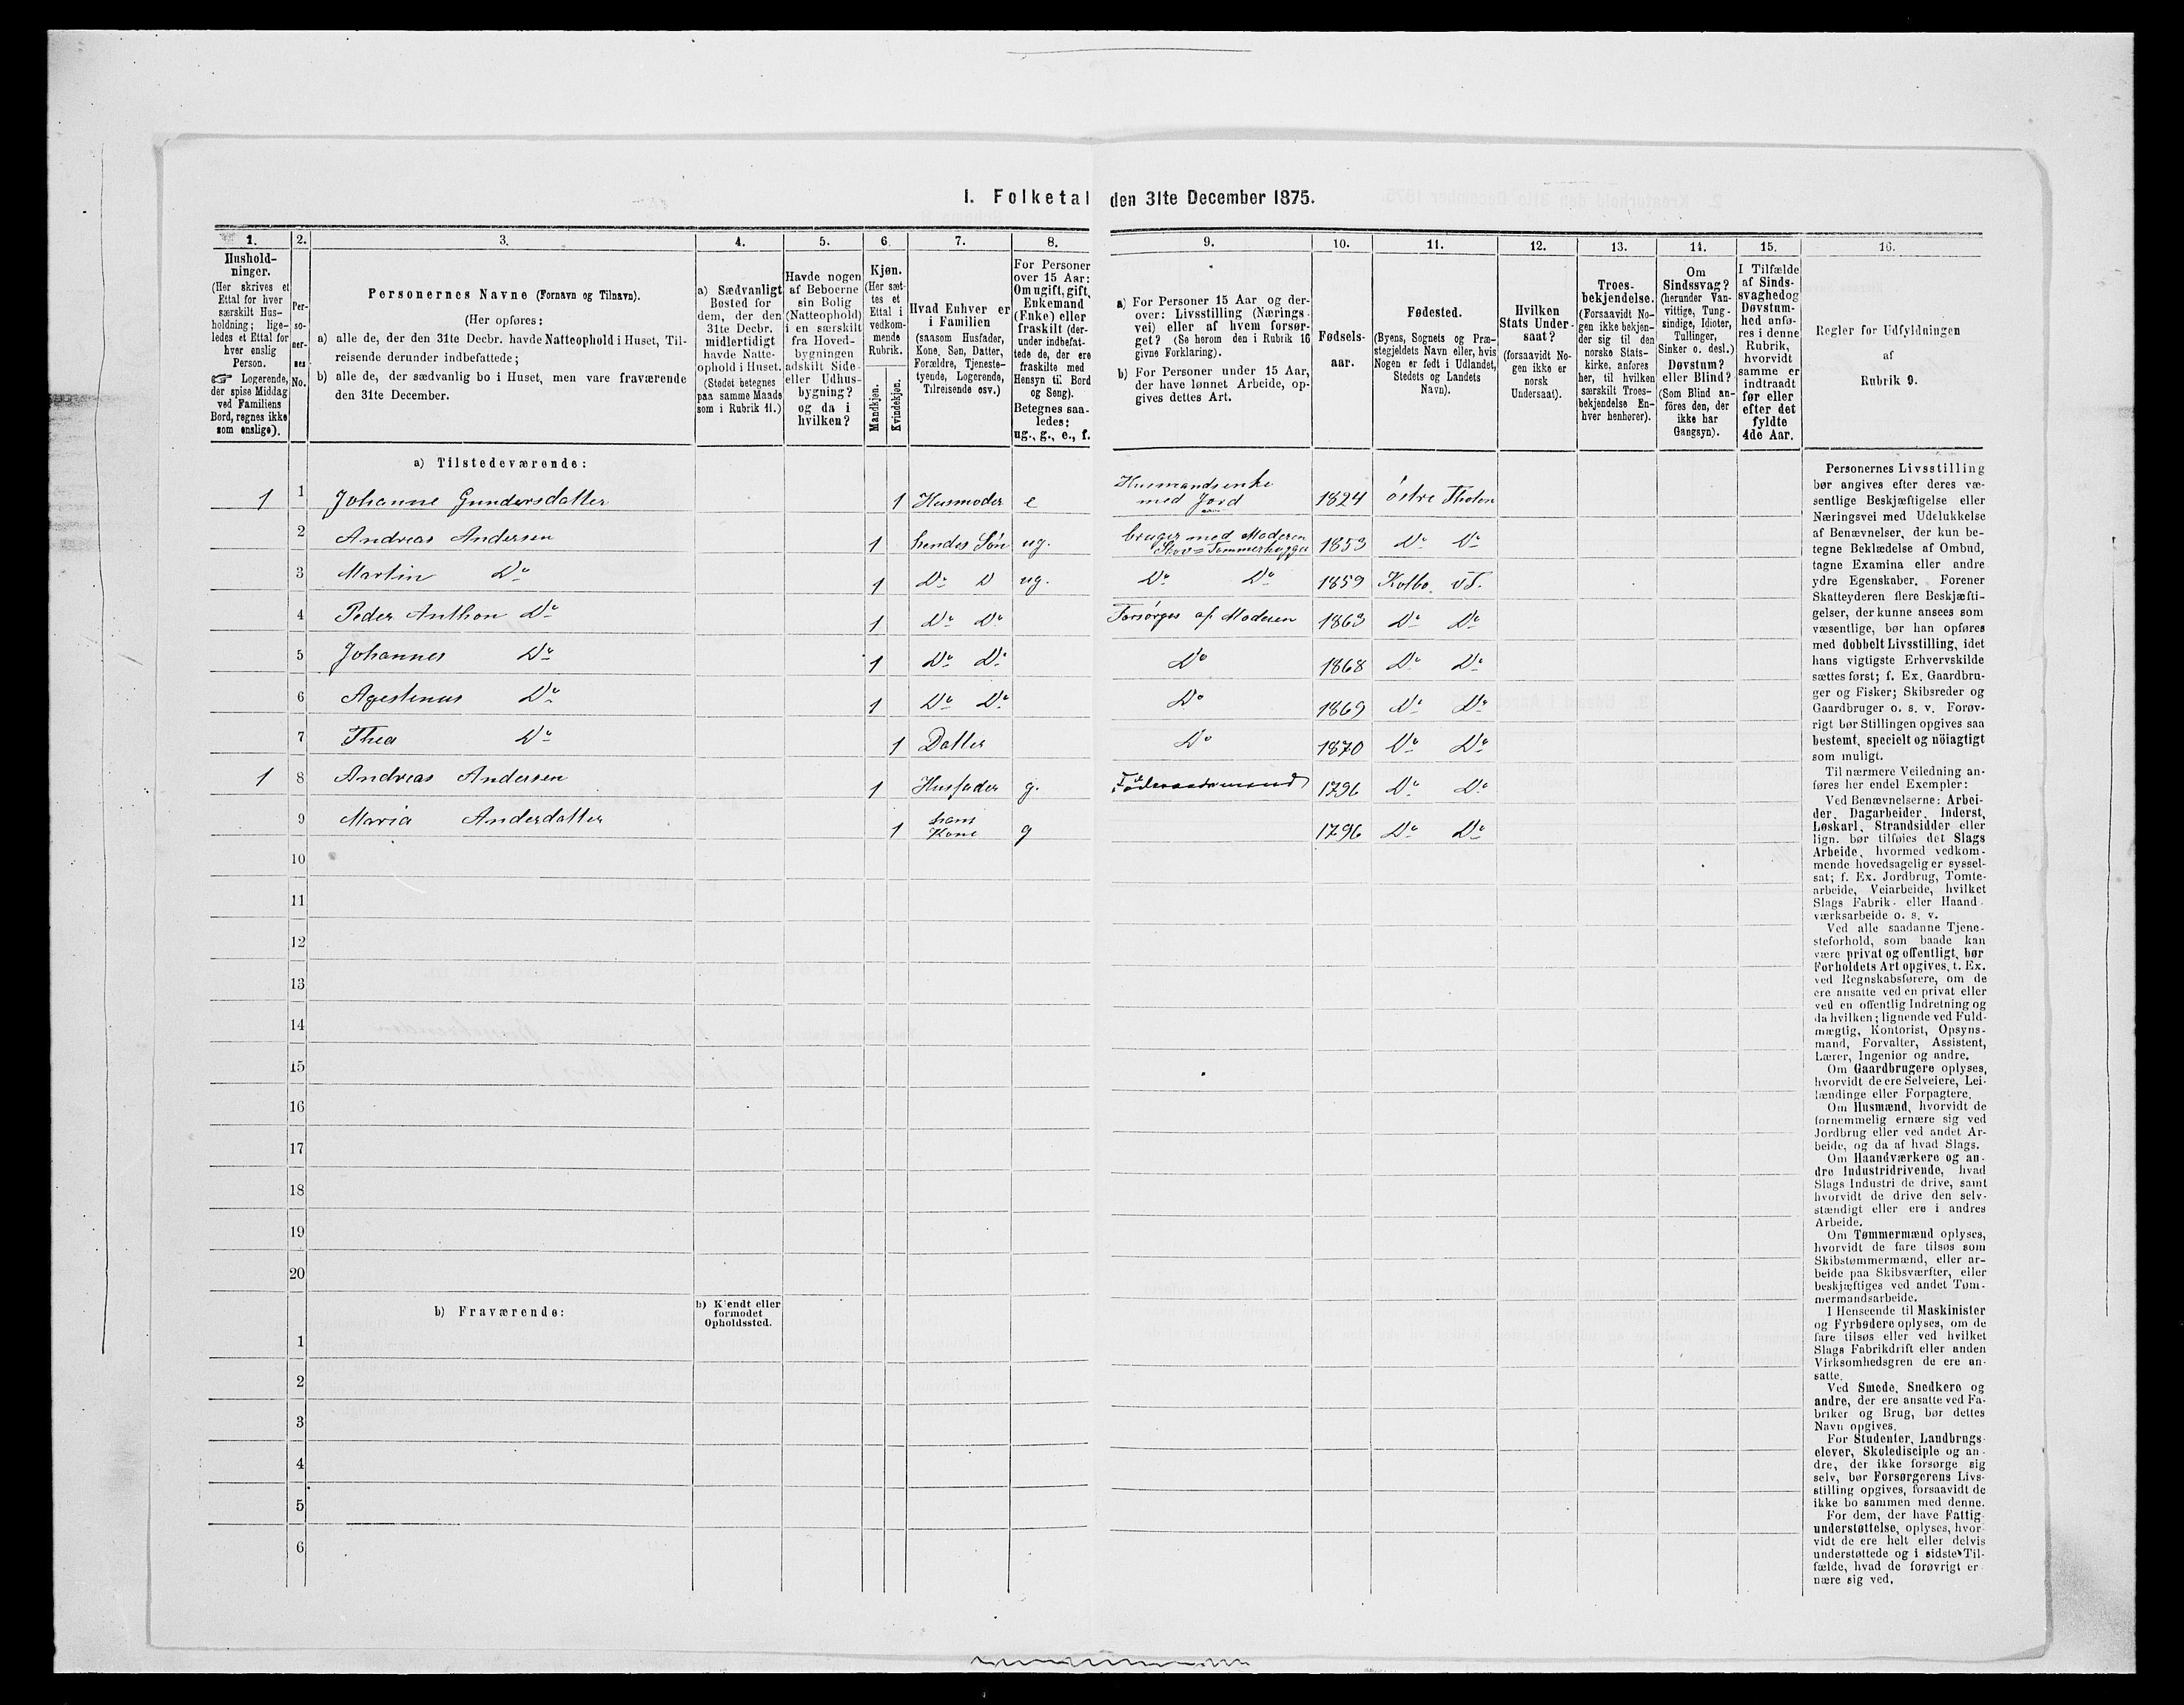 I. Folketal den 31te December 1875.
1.
2.
3.
4.
5.
6.
7.
8.
9.
10.
11.
12.
13.
14.
15.
16.
Hushold-
ninger.
(Her skrives et
Ettal for hver
særskilt Hus-
holdning; lige-
ledes et Ettal for
hver enslig
Person.
☞ Logerende,
der spise Middag
ved Familiens
Bord, regnes ikke
som enslige).
Per-
so-
ner-
nes
No.
Personernes Navne (Fornavn og Tilnavn).
(Her opføres:
a) alle de, der den 31te Decbr. havde Natteophold i Huset, Til-
reisende derunder indbefattede;
b) alle de, der sædvanlig bo i Huset, men vare fraværende
den 31te December.
a) Sædvanligt
Bosted for
dem, der den
31te Decbr.
midlertidigt
havde Natte-
ophold i Huset.
(Stedet betegnes
paa samme Maade
som i Rubrik 11.)
Havde nogen
af Beboerne
sin Bolig
(Natteophold)
i en særskilt
fra Hoved-
bygningen
adskilt Side-
eller Udhus-
bygning?
og da i
hvilken?
Kjøn.
(Her sæt-
tes et
Ettal i
vedkom-
mende
Rubrik.
Mandkjøn.
Kvindekjøn.
Hvad Enhver er
i Familien
(saasom Husfader,
Kone, Søn, Datter,
Forældre, Tjeneste-
tyende, Logerende,
Tilreisende osv.)
For Personer
over 15 Aar:
Om ugift, gift,
Enkemand
(Enke) eller
fraskilt (der-
under indbefat-
tede de, der ere
fraskilte med
Hensyn til Bord
og Seng).
Betegnes saa-
ledes:
ug., g., e., f.
a) For Personer 15 Aar og der-
over: Livsstilling (Nærings-
vei) eller af hvem forsør-
get? (Se herom den i Rubrik 16
givne Forklaring).
b) For Personer under 15 Aar,
der have lønnet Arbeide, op-
gives dettes Art.
Fødsels-
aar.
Fødested.
(Byens, Sognets og Præ-
stegjeldets Navn eller, hvis
Nogen er født i Udlandet,
Stedets og Landets
Navn).
Hvilken
Stats Under-
saat?
(forsaavidt No-
gen ikke er
norsk
Undersaat).
Troes-
bekjendelse.
(Forsaavidt No-
gen ikke bekjen-
der sig til den
norske Stats-
kirke, anføres
her, til hvilken
særskilt Troes-
bekjendelse En-
hver henhører).
Om
Sindssvag?
(herunder Van-
vittige, Tung-
sindige, Idioter,
Tullinger,
Sinker o. desl.)
Døvstum?
eller Blind?
(Som Blind an-
føres den, der
ikke har
Gangsyn).
I Tilfælde
af Sinds-
svaghed og
Døvstum-
hed anfø-
res i denne
Rubrik,
hvorvidt
samme er
indtraadt
før eller
efter det
fyldte
4de Aar.
Regler for Udfyldningen
af
Rubrik 9.
a) Tilstedeværende:
1 1 Johanne Gundersdatter 1 Husmoder e Husmandsenke med Jord 1824 östre Thoten
2 Andreas Andersen 1 hendes Sön ug. bruger med Moderen Skov= Tømmerhugger 1853 Do Do
3 Martin Do 1 Do D ug. Do Do 1859 Kolbo V.T.
4 Peder Anthon Do 1 Do Do Forsörges af Moderen 1863 Do Do
5 Johannes Do 1 Do Do Do 1868 Do Do
6 Agestinus Do 1 Do Do Do 1869 Do Do
7 Thea Do 1 Datter Do 1870 Do Do
1 8 Andreas Andersen 1 Husfader g. Föderaadsmand 1796 Do Do
9 Maria Andersdatter 1 hans Kone g 1796 Do Do
10
11
12
13
14
15
16
17
18
19
20
b) Fraværende:
b) Kjendt eller
formodet
Opholdssted.
1
2
3
4
5
6
Personernes Livsstilling
bør angives efter deres væ-
sentlige Beskjæftigelse eller
Næringsvei med Udelukkelse
af Benævnelser, der kun be-
tegne Beklædelse af Ombud,
tagne Examina eller andre
ydre Egenskaber. Forener
Skatteyderen flere Beskjæfti-
gelser, der kunne ansees som
væsentlige, bør han opføres
med dobbelt Livsstilling, idet
hans vigtigste Erhvervskilde
sættes først; f. Ex. Gaardbru-
ger og Fisker; Skibsreder og
Gaardbruger o. s. v. Forøv-
rigt bør Stillingen opgives saa
bestemt, specielt og nöiagtigt
som muligt.
Til nærmere Veiledning an-
føres her endel Exempler:
Ved Benævnelserne: Arbei-
der, Dagarbeider, Inderst,
Løskarl, Strandsidder eller
lign. bør tilføies det Slags
Arbeide, hvormed vedkom-
mende hovedsagelig er syssel-
sat; f. Ex. Jordbrug, Tomte-
arbeide, Veiarbeide, hvilket
Slags Fabrik- eller Haand-
værksarbeide o. s. v.
Ved alle saadanne Tjene-
steforhold, som baade kan
være privat og offentligt, bør
Forholdets Art opgives, t. Ex.
ved Regnskabsførere, om de
ere ansatte ved en privat eller
ved en offentlig Indretning og
da hvilken; lignende ved Fuld-
mægtig, Kontorist, Opsyns-
mand, Forvalter, Assistent,
Lærer, Ingeniør og andre.
Om Gaardbrugere oplyses,
hvorvidt de ere Selveiere, Lei-
lændinge eller Forpagtere.
Om Husmænd, hvorvidt de
fornemmelig ernære sig ved
Jordbrug eller ved andet Ar-
beide, og da af hvad Slags.
Om Haandværkere og an-
dre Industridrivende, hvad
Slags Industri de drive, samt
hvorvidt de drive den selv-
stændigt eller ere i andres
Arbeide.
Om Tømmermænd oplyses,
hvorvidt de fare tilsøs som
Skibstømmermænd, eller ar-
beide paa Skibsværfter, eller
beskjæftiges ved andet Tøm-
mermandsarbeide.
I Henseende til Maskinister
og Fyrbødere oplyses, om de
fare tilsøs eller ved hvilket
Slags Fabrikdrift eller anden
Virksomhedsgren de ere an-
satte.
Ved Smede, Snedkere og
andre, der ere ansatte ved Fa-
briker og Brug, bør dettes
Navn opgives.
For Studenter, Landbrugs-
elever, Skoledisciple og an-
dre, der ikke forsørge sig
selv, bør Forsørgerens Livs-
stilling opgives, forsaavidt de
ikke bo sammen med denne.
For dem, der have Fattig-
understøttelse, oplyses, hvor-
vidt de ere helt eller delvis
understøttede og i sidste Til-
fælde, hvad de forøvrigt er-
nære sig ved.